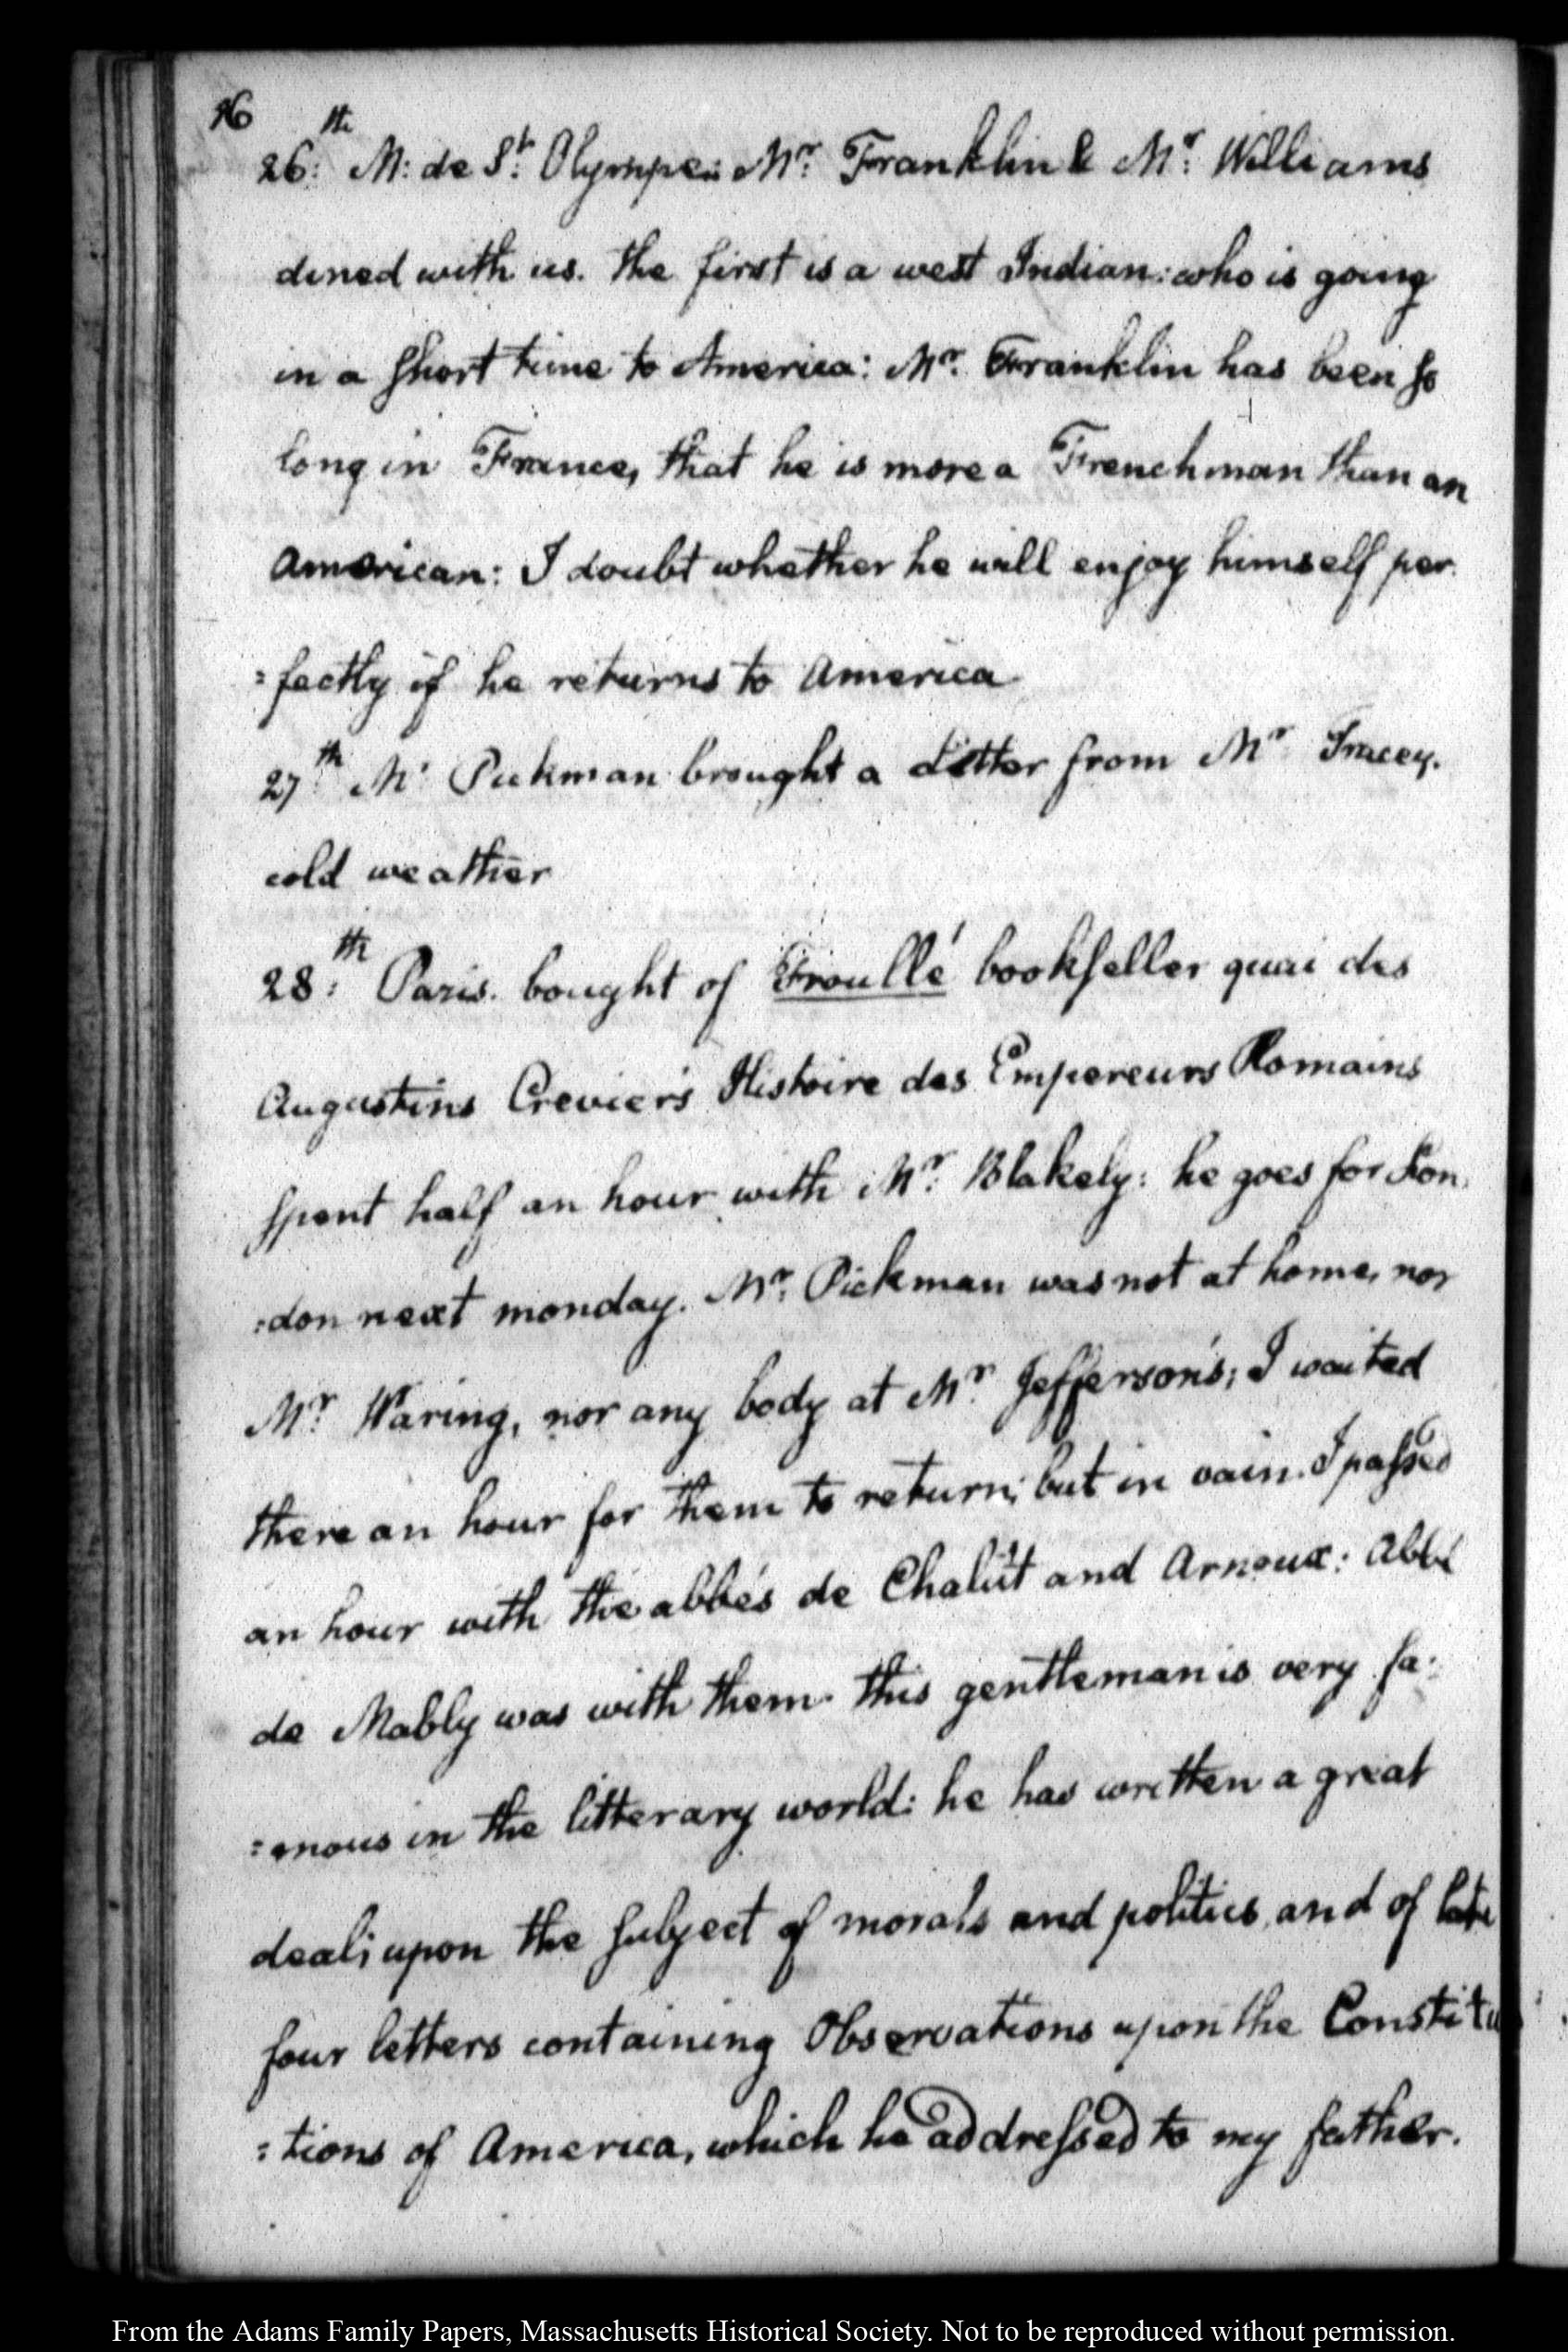 16
26:th M: de St: Olympe: Mr: Franklin & Mr: Williams
dined with us. the first is a west Indian: who is going
in a short time to America: Mr: Franklin has been so
long in France, that he is more a Frenchman than an
American: I doubt whether he will enjoy himself per
=fectly if he returns to America
27th Mr Pickman brought a Letter from Mr Tracey.
cold weather
28:th Paris. bought of Froullé bookseller quai des
Augustins Crevier's Histoire des Empereurs Romains
spent half an hour with Mr: Blakely: he goes for Lon
:don next monday. Mr: Pickman was not at home, nor
Mr: Waring, nor any body at Mr Jefferson's; I waited
there an hour for them to return; but in vain. I passed
an hour with the abbés de Chalût and Arnoux: abbé
de Mably was with them. this gentleman is very fa:
=mous in the litterary world: he has written a great
deal; upon the subject of morals and politics, and of late
four letters containing Observations upon the Constitu
=tions of America, which he addressed to my father.
From the Adams Family Papers, Massachusetts Historical Society. Not to be reproduced without permission.